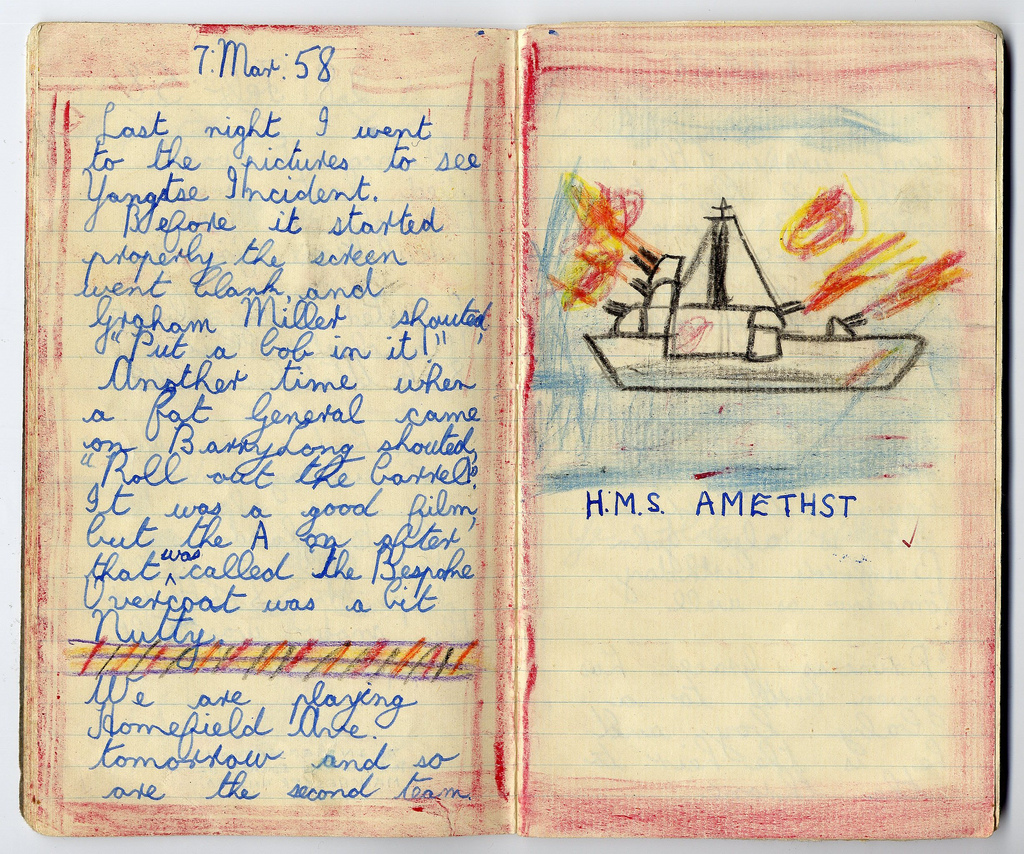 7: Mar: 58
Last night I went
to the pictures to see
Yangtse Incident.
Before it started
properly the screen
went blank, and
Graham Miller shouted,
"Put a bob in it!"
Another time when
a fat General came
on Barry Long shouted,
"Roll out the barrel".
It was a good film,
but the A on after
that was called the Bespoke
Overcoat was a bit
Nutty.
We are playing
Homefield Ave.
tomorrow and so
are the second team.
H.M.S. AMETHST